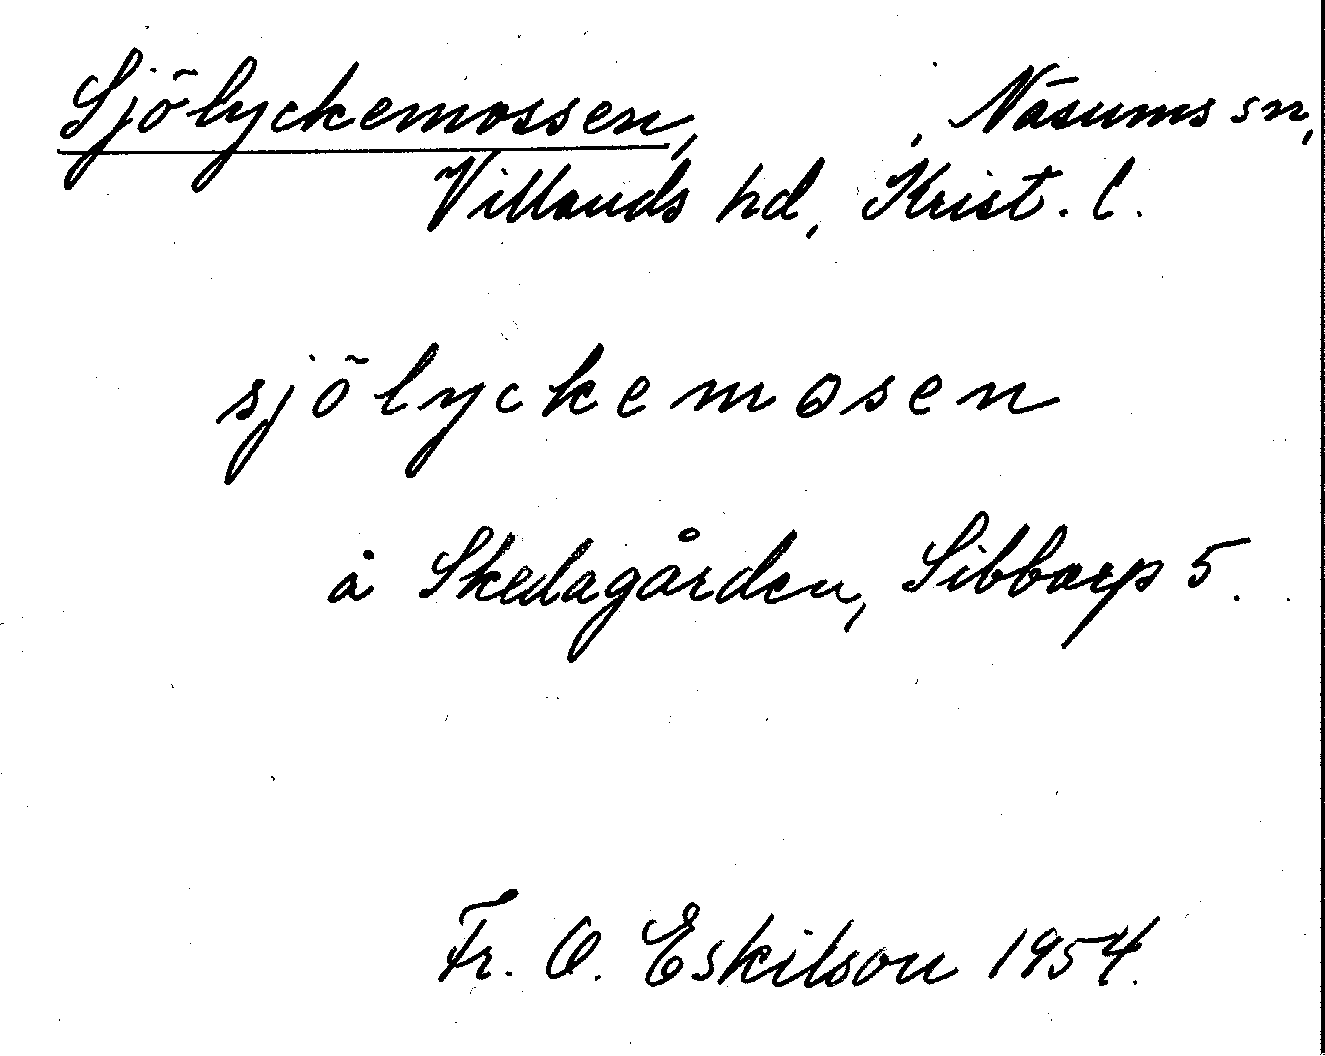 Sjölyckemossen, , Näsums sn,
Villands hd, Krist. l.
sjölyckemosen
å Skedagården, Sibbarp 5.
Fr. O. Eskilson 1954.